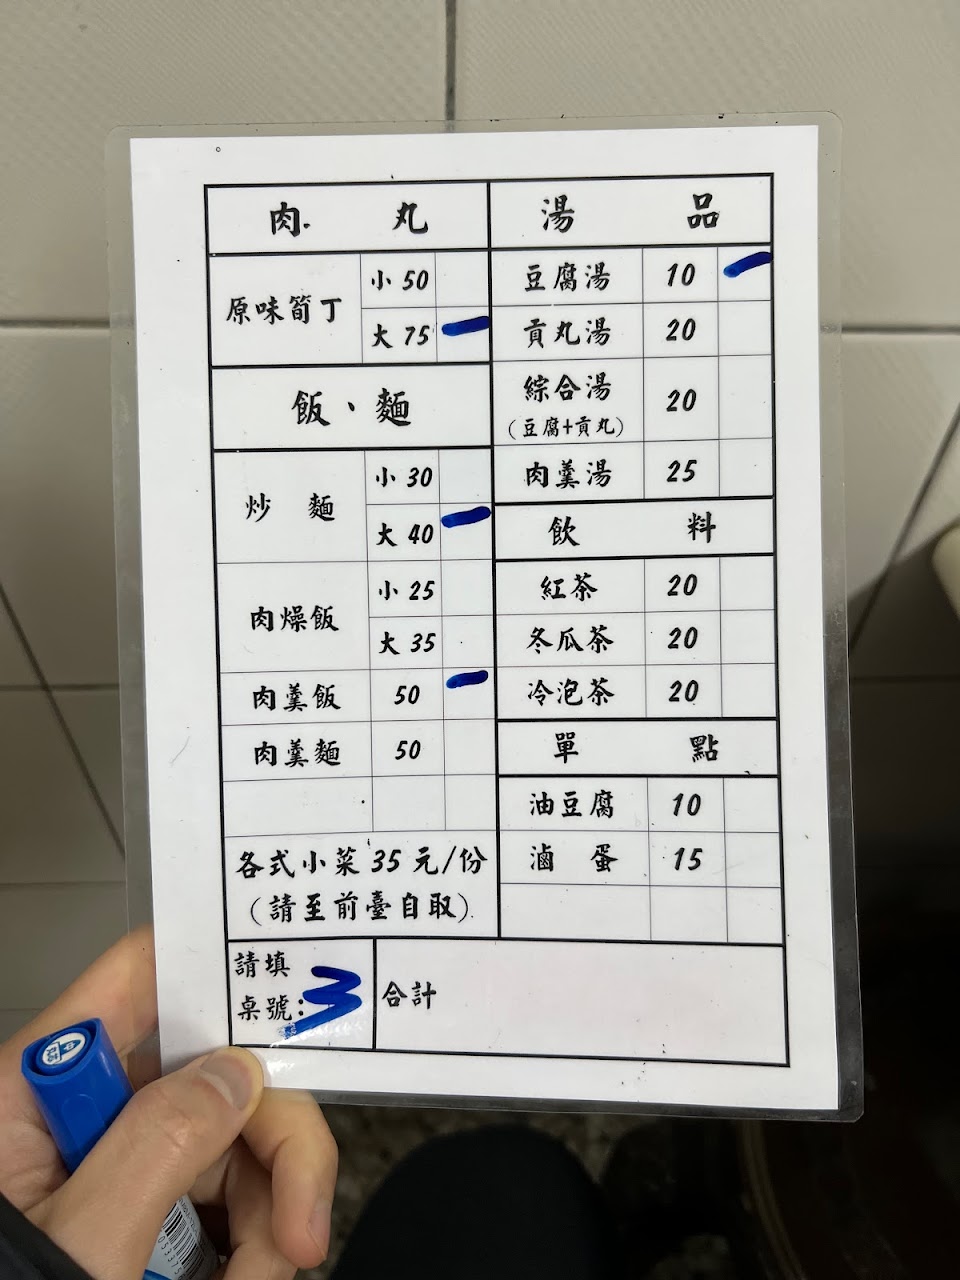 肉 丸
原味筍丁
小 50
大 75
飯、麵
炒 麵
小 30
大 40
肉燥飯
小 25
大 35
肉羹飯 50
肉羹麵 50
各式小菜 35 元/份
(請至前臺自取)
請填
桌號: 3
合計
湯 品
豆腐湯 10
貢丸湯 20
綜合湯 20
(豆腐+貢丸)
肉羹湯 25
飲 料
紅茶 20
冬瓜茶 20
冷泡茶 20
單 點
油豆腐 10
滷 蛋 15